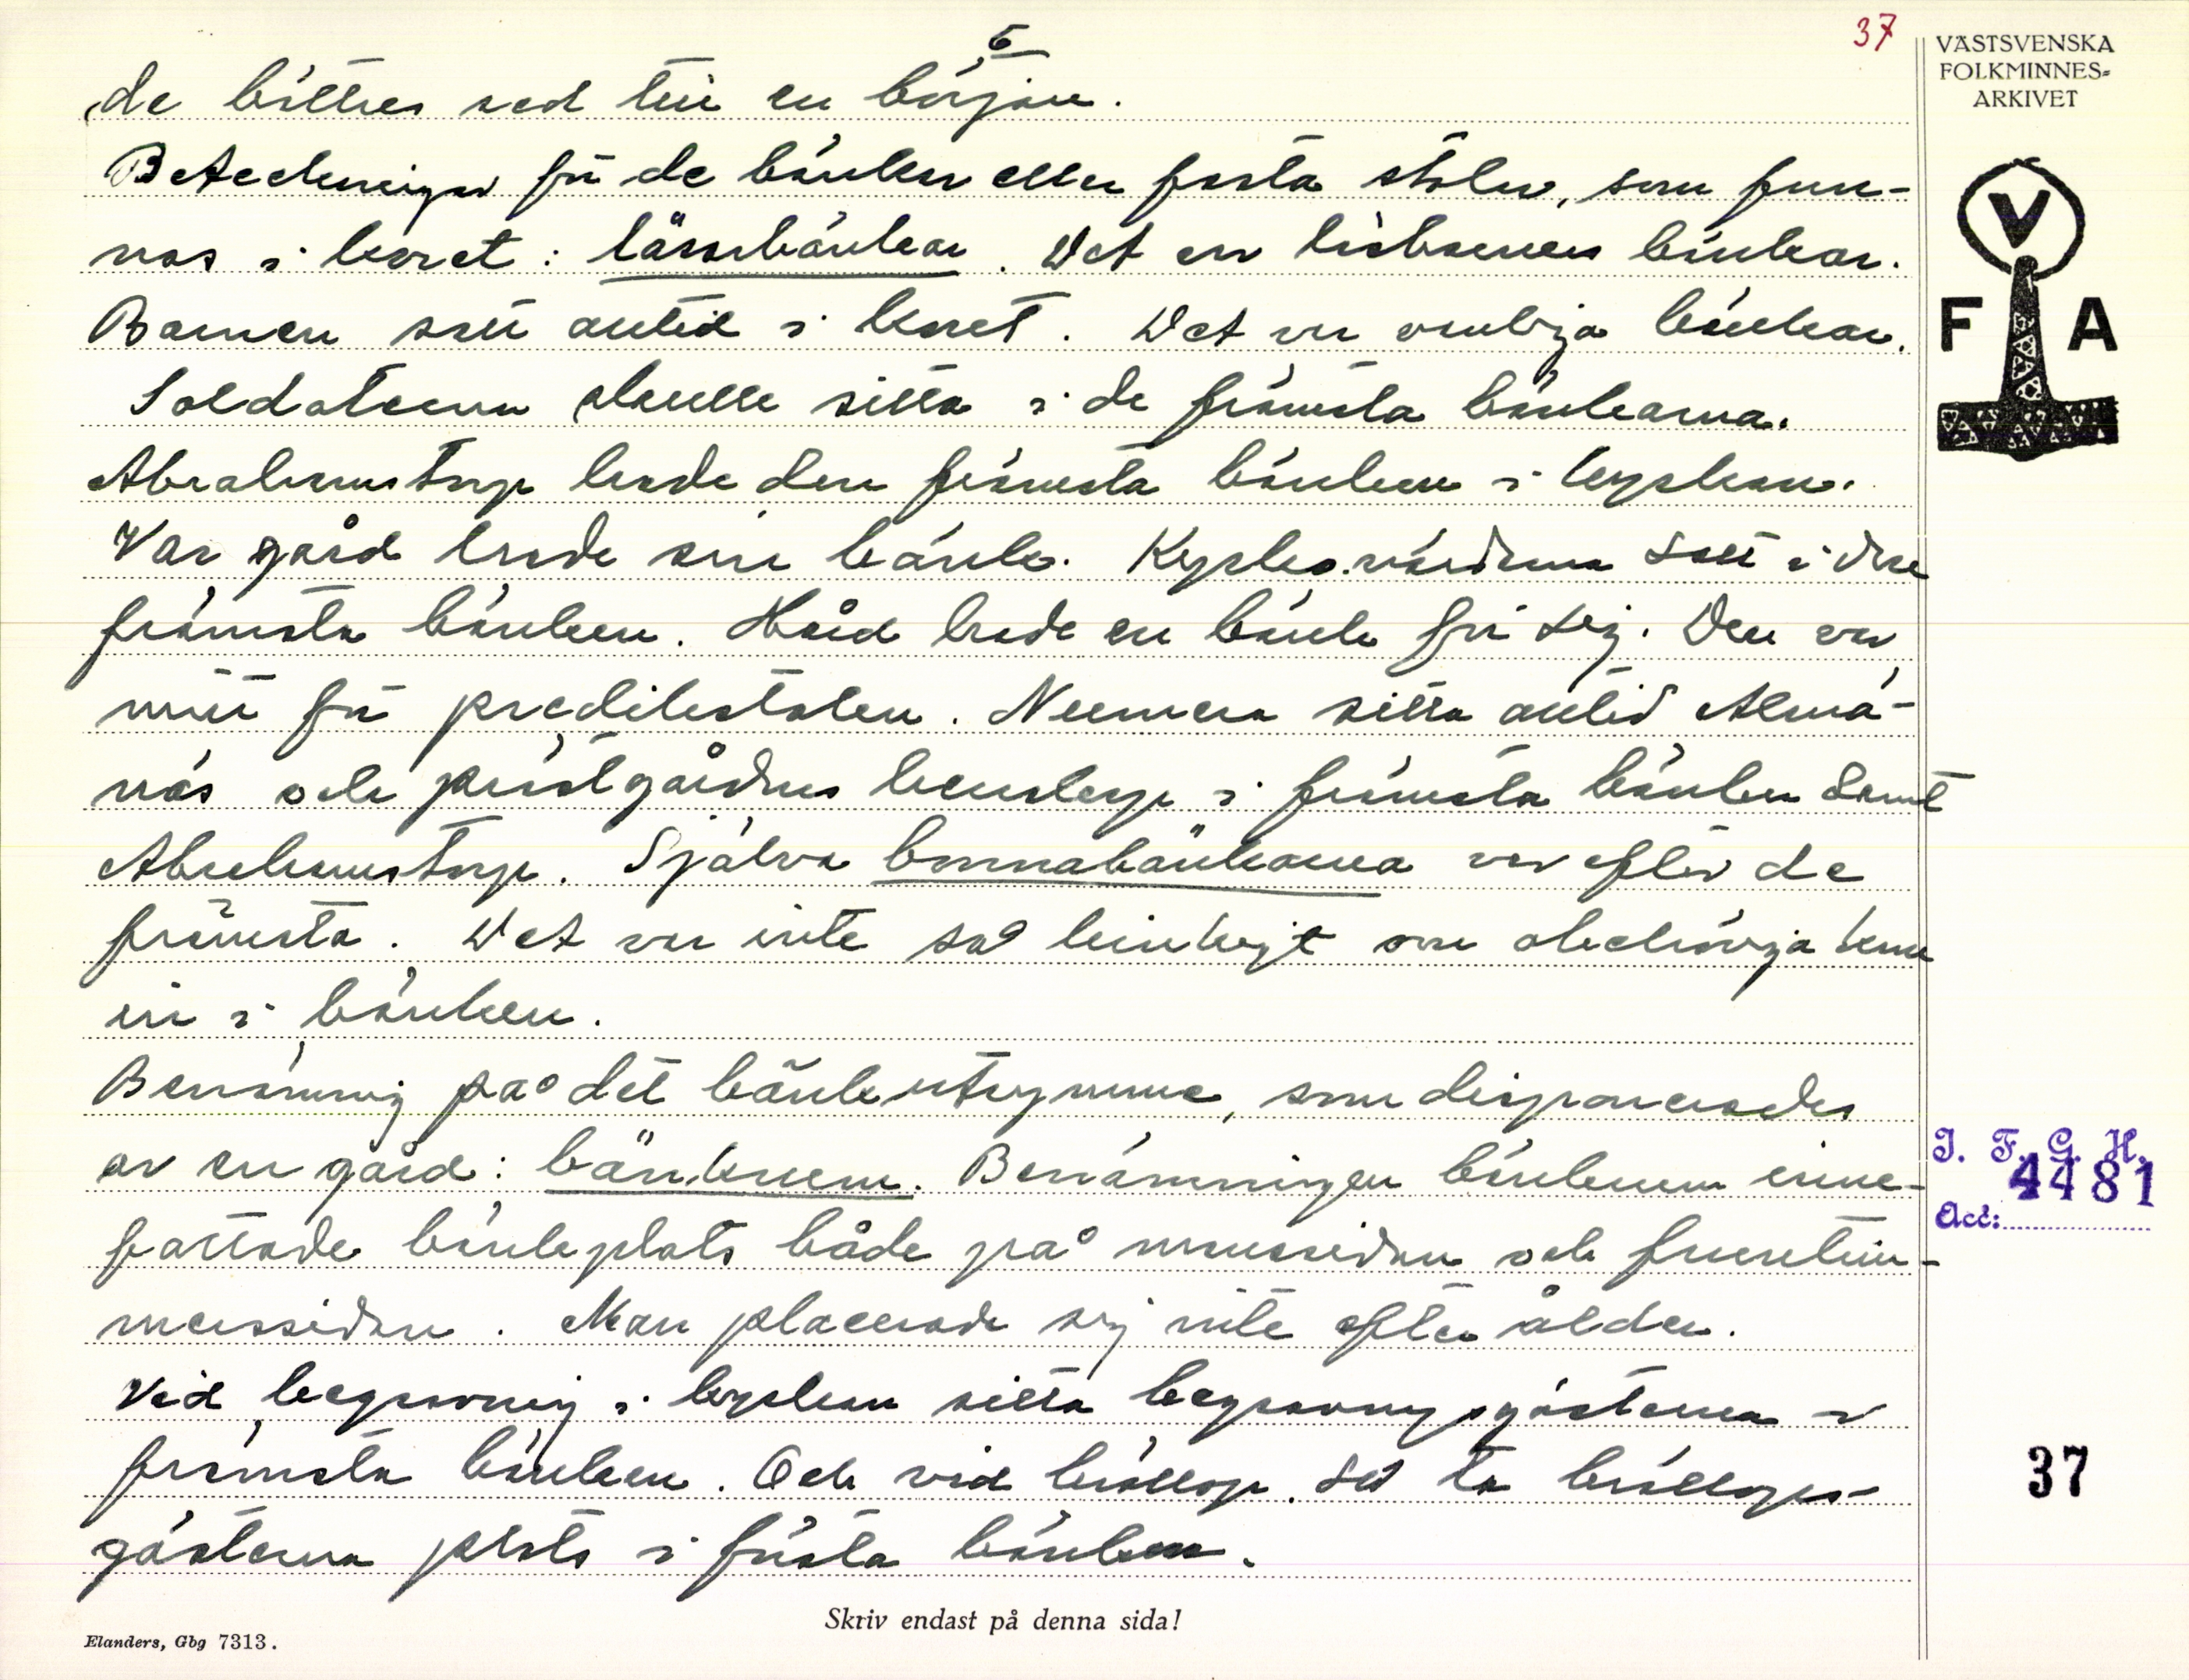 5
37
VÄSTSVENSKA
FOLKMINNES-
ARKIVET
de sed till en början.
Beteckningar för de bänkar eller fasta stolar, som fun-
nos i koret: läsarbänkar. Det var bänkar.
Barnen satt alltid i koret. Det var bänkar.
Soldaterna skulle sitta i de främsta bänkarna.
Abrahamstorp hade den främsta bänken i kyrkan.
Var gård hade sin bänk. Kyrkovärdarna satt i den
främsta bänken. Håid hade en bänk för sig. Den var
mitt för predikstolen. Numera sitta alltid Almä-
näs och prästgårdens herrskap i främsta bänken samt
Abrahamstorp. Själva bonnabänkarna var efter de
främsta. Det var inte så om obehöriga kom
in i bänken.
Benämning på det bänkutrymme, som disponerades
av en gård: bänkrum. Benämningen bänkrum inne-
fattade bänkplats både på manssidan och fruntim-
merssidan. Man placerade sig inte efter ålder.
Vid begravning i kyrkan sitta begravningsgästerna i
främsta bänken. Och vid bröllop. Så ta bröllops-
gästerna plats i första bänken.
V
F A
I. F. G. H.
4481
Acc:
37
Skriv endast på denna sida!
Elanders, Gbg 7313.